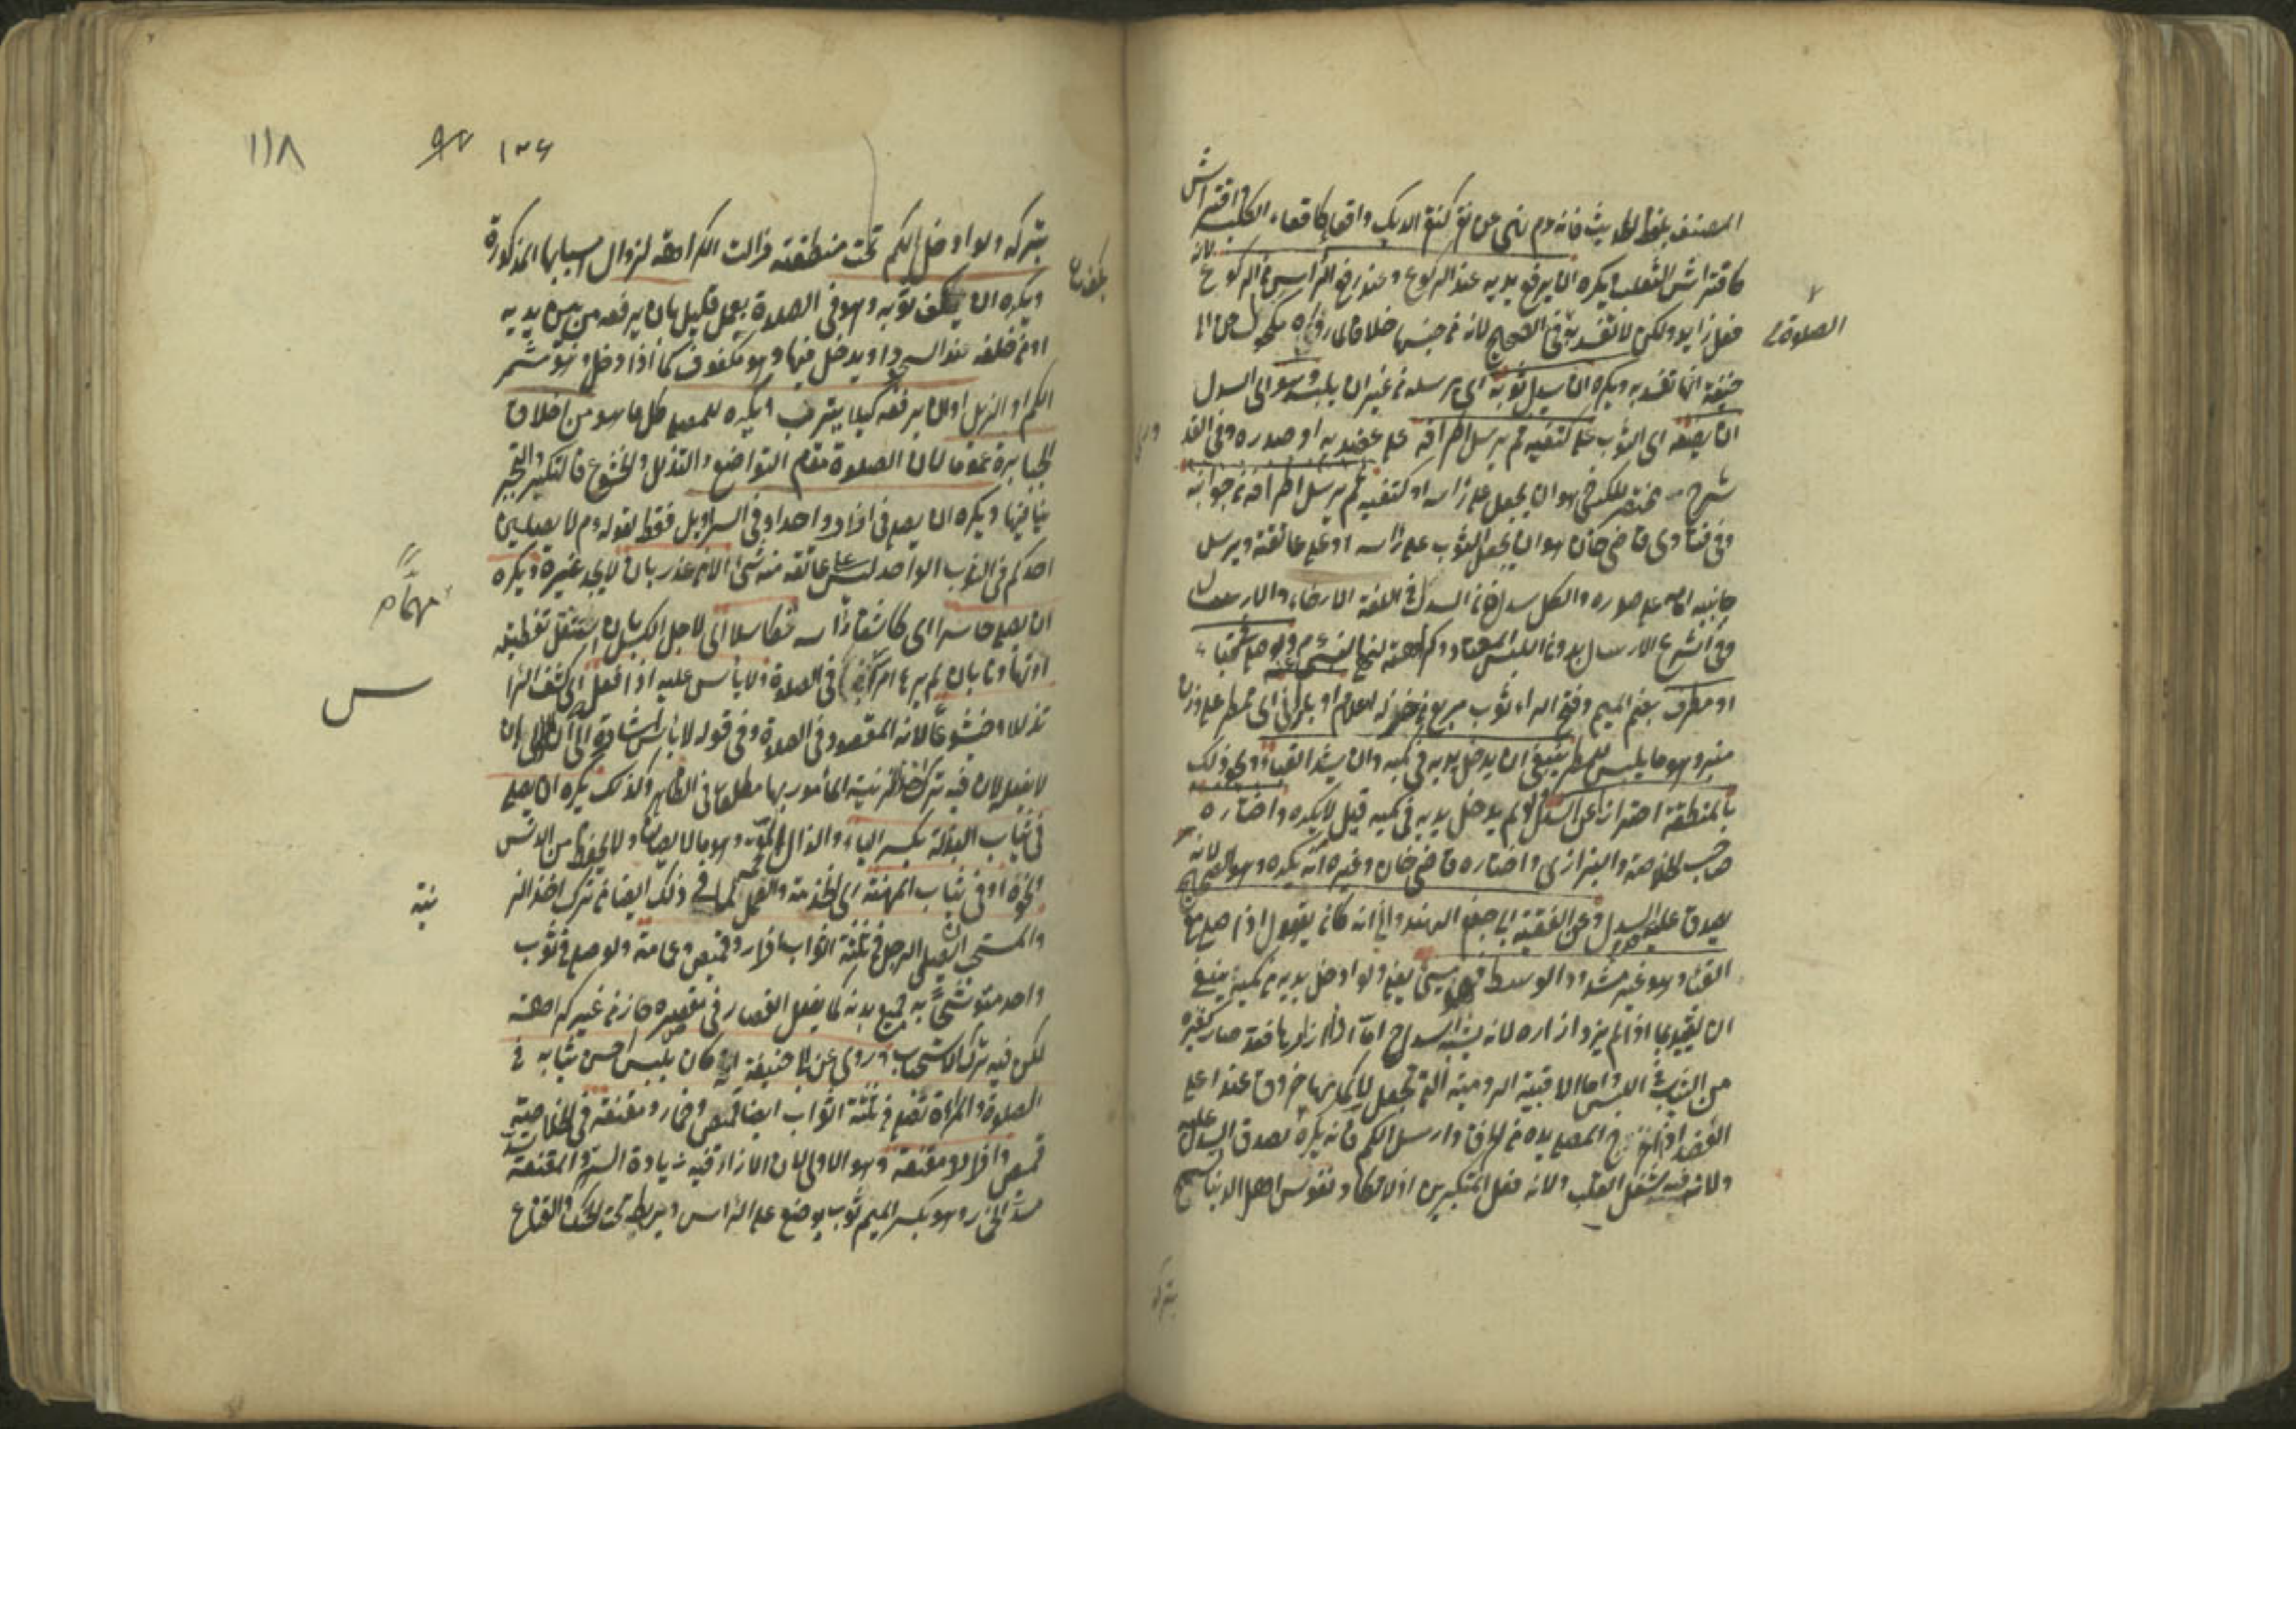 المصنف بلفظ الحديث فانه دم نهى عن نقر كنقر الديك واقعاء كاقعاء الكلب وافتراش
كافتراش الثعلب ويكره ان يرفع يديه عند الركوع وعند رفع الراس من الركوع لانه
فعل زايد ولكن لا تفسد به في الصحيح لانه من جنس خلافا لما روى مكحول عن ابى
الصلوة
حنيفة انها تفسد به ويكره ان يسدل ثوبه اى يرسله من غير ان يلبسه وهو اى السدل
ان يضعه اى الثوب على كتفيه ثم يرسل اطرافه على عضديه او صدره وفي القدورى
شرح مختصر الكرخى هو ان يجعل على راسه او كتفيه ثم يرسل اطرافه من جوانبه
وفى فتاوى قاضى خان هو ان يجعل الثوب على راسه او على عاتقه ويرسل
جانبيه امامه على صدره والكل سدل فان السدل في اللغة الارخاء والارسال
وفى الشرع الارسال بدون اللبس المعتاد وكراهته لنهيه
او مطرف بضم الميم وفتح الراء ثوب مربع من خز له اعلام او بارانى اى ممطر على وزن
منبر وهو ما يلبس للمطر ينبغى ان يدخل يديه فى كميه وان يشد القباء ونحو ذلك
بالمنطقة احترازا عن السدل ولو لم يدخل يديه فى كميه قيل لا يكره واختاره
صاحب الخلاصة والبزازى واختاره قاضى خان وغيره انه يكره وهو الصحيح لانه
يصدق عليه السدل وعن الفقيه ابى جعفر الهندوانى انه كان يقول اذا صلى مع
القباء وهو غير مشدود الوسط فهو مسئ يعنى ولو ادخل يديه من كميه ينبغى
ان يقيد بما اذا لم يزر ازراره لانه يشبه السدل اما اذا زر ازرارها فقد صار كغيره
من الثياب فى اللبس واما الاقبية الرومية التى تجعل لاكمامها خروق عند اعلى
العضد اذا اخرج المصلى يده من الخرق وارسل الكم فانه يكره لصدق السدل عليه
ولانه فيه شغل القلب ولانه فعل المتكبرين اذ لا ونفوس اهل الدنيا تشح
بتركه
١١٨
١٢٦
بتركه ولو ادخل الكم تحت منطقته زالت الكراهة لزوال اسبابها المذكورة
ويكره ان يكف ثوبه وهو فى الصلوة بعمل قليل بان يرفعه من بين يديه
او من خلفه عند السجود او يدخل فيها وهو مكفوف كما اذا دخل وهو مشمر
الكم او الذيل او ان يرفعه كيلا يتترب ويكره للمصلى كل ما هو من اخلاق
الجبابرة عموما لان الصلوة مقام التواضع والتذلل والخشوع فالتكبر والتجبر
ينافيها ويكره ان يصلى فى ازار واحد او فى السراويل فقط لقوله دم لا يصلين
احدكم فى الثوب الواحد ليس على عاتقه منه شئ الا من عذر بان لا يجد غيره ويكره
ان يصلى حاسرا اى كاشفا راسه تكاسلا اى لاجل الكسل بان استثقل تغطيته
او تهاونا بان لم يرها امرا فى الصلوة ولا بأس عليه اذا فعل اى كشف الراس
تذللا وخشوعا لانه المقصود فى الصلوة وفى قوله لا بأس اشارة الى ان الاولى ان
لا يفعل لان فيه ترك اخذ الزينة المأمور بها مطلقا فى الظاهر وكذلك يكره ان يصلى
فى ثياب البذلة بكسر الباء والذال المعجمة وهو ما لا يصان ولا يحفظ من الدنس
ونحوه او فى ثياب المهنة اى الخدمة والعمل لما فى ذلك ايضا من ترك اخذ الزينة
والمستحب ان يصلى الرجل فى ثلثة اثواب ازار وقميص وعمامة ولو صلى فى ثوب
واحد متوشحا به جميع بدنه كما يفعل القصار فى مقصره جاز من غير كراهة
لكن فيه ترك الاستحباب وروى عن ابى حنيفة انه كان يلبس احسن ثيابه فى
الصلوة والمراة تصلى فى ثلثة اثواب ايضا قميص وخمار ومقنعة فى الخلاصة
قميص وازار ومقنعة وهو الاولى لان الازار فيه زيادة الستر والمقنعة
هو بكسر الميم ثوب يوضع على الراس ويربط تحت الحنك والقناع
مهمة
س